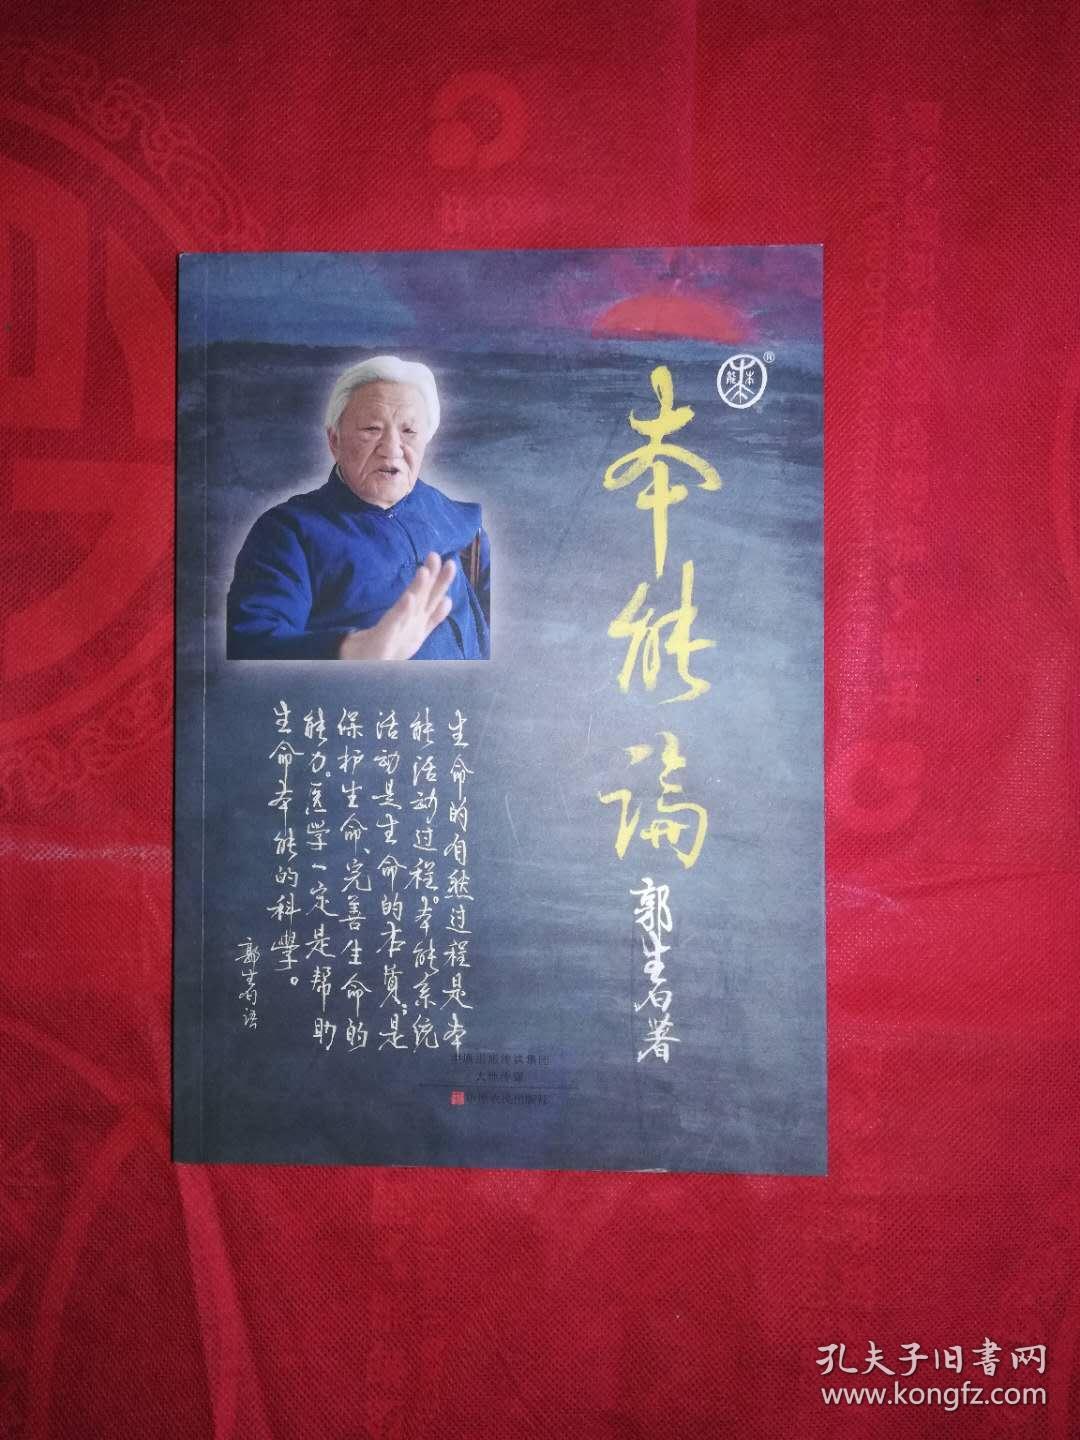 本能論
郭生白著
能本
®
生命的自然过程是本
能活动过程。本能系统
活动是生命的本質；是
保护生命、完善生命的
能力。医学一定是帮助
生命本能的科學。
郭生白语
中原出版传媒集团
大地传媒
中原农民出版社
孔夫子旧書网
www.kongfz.com